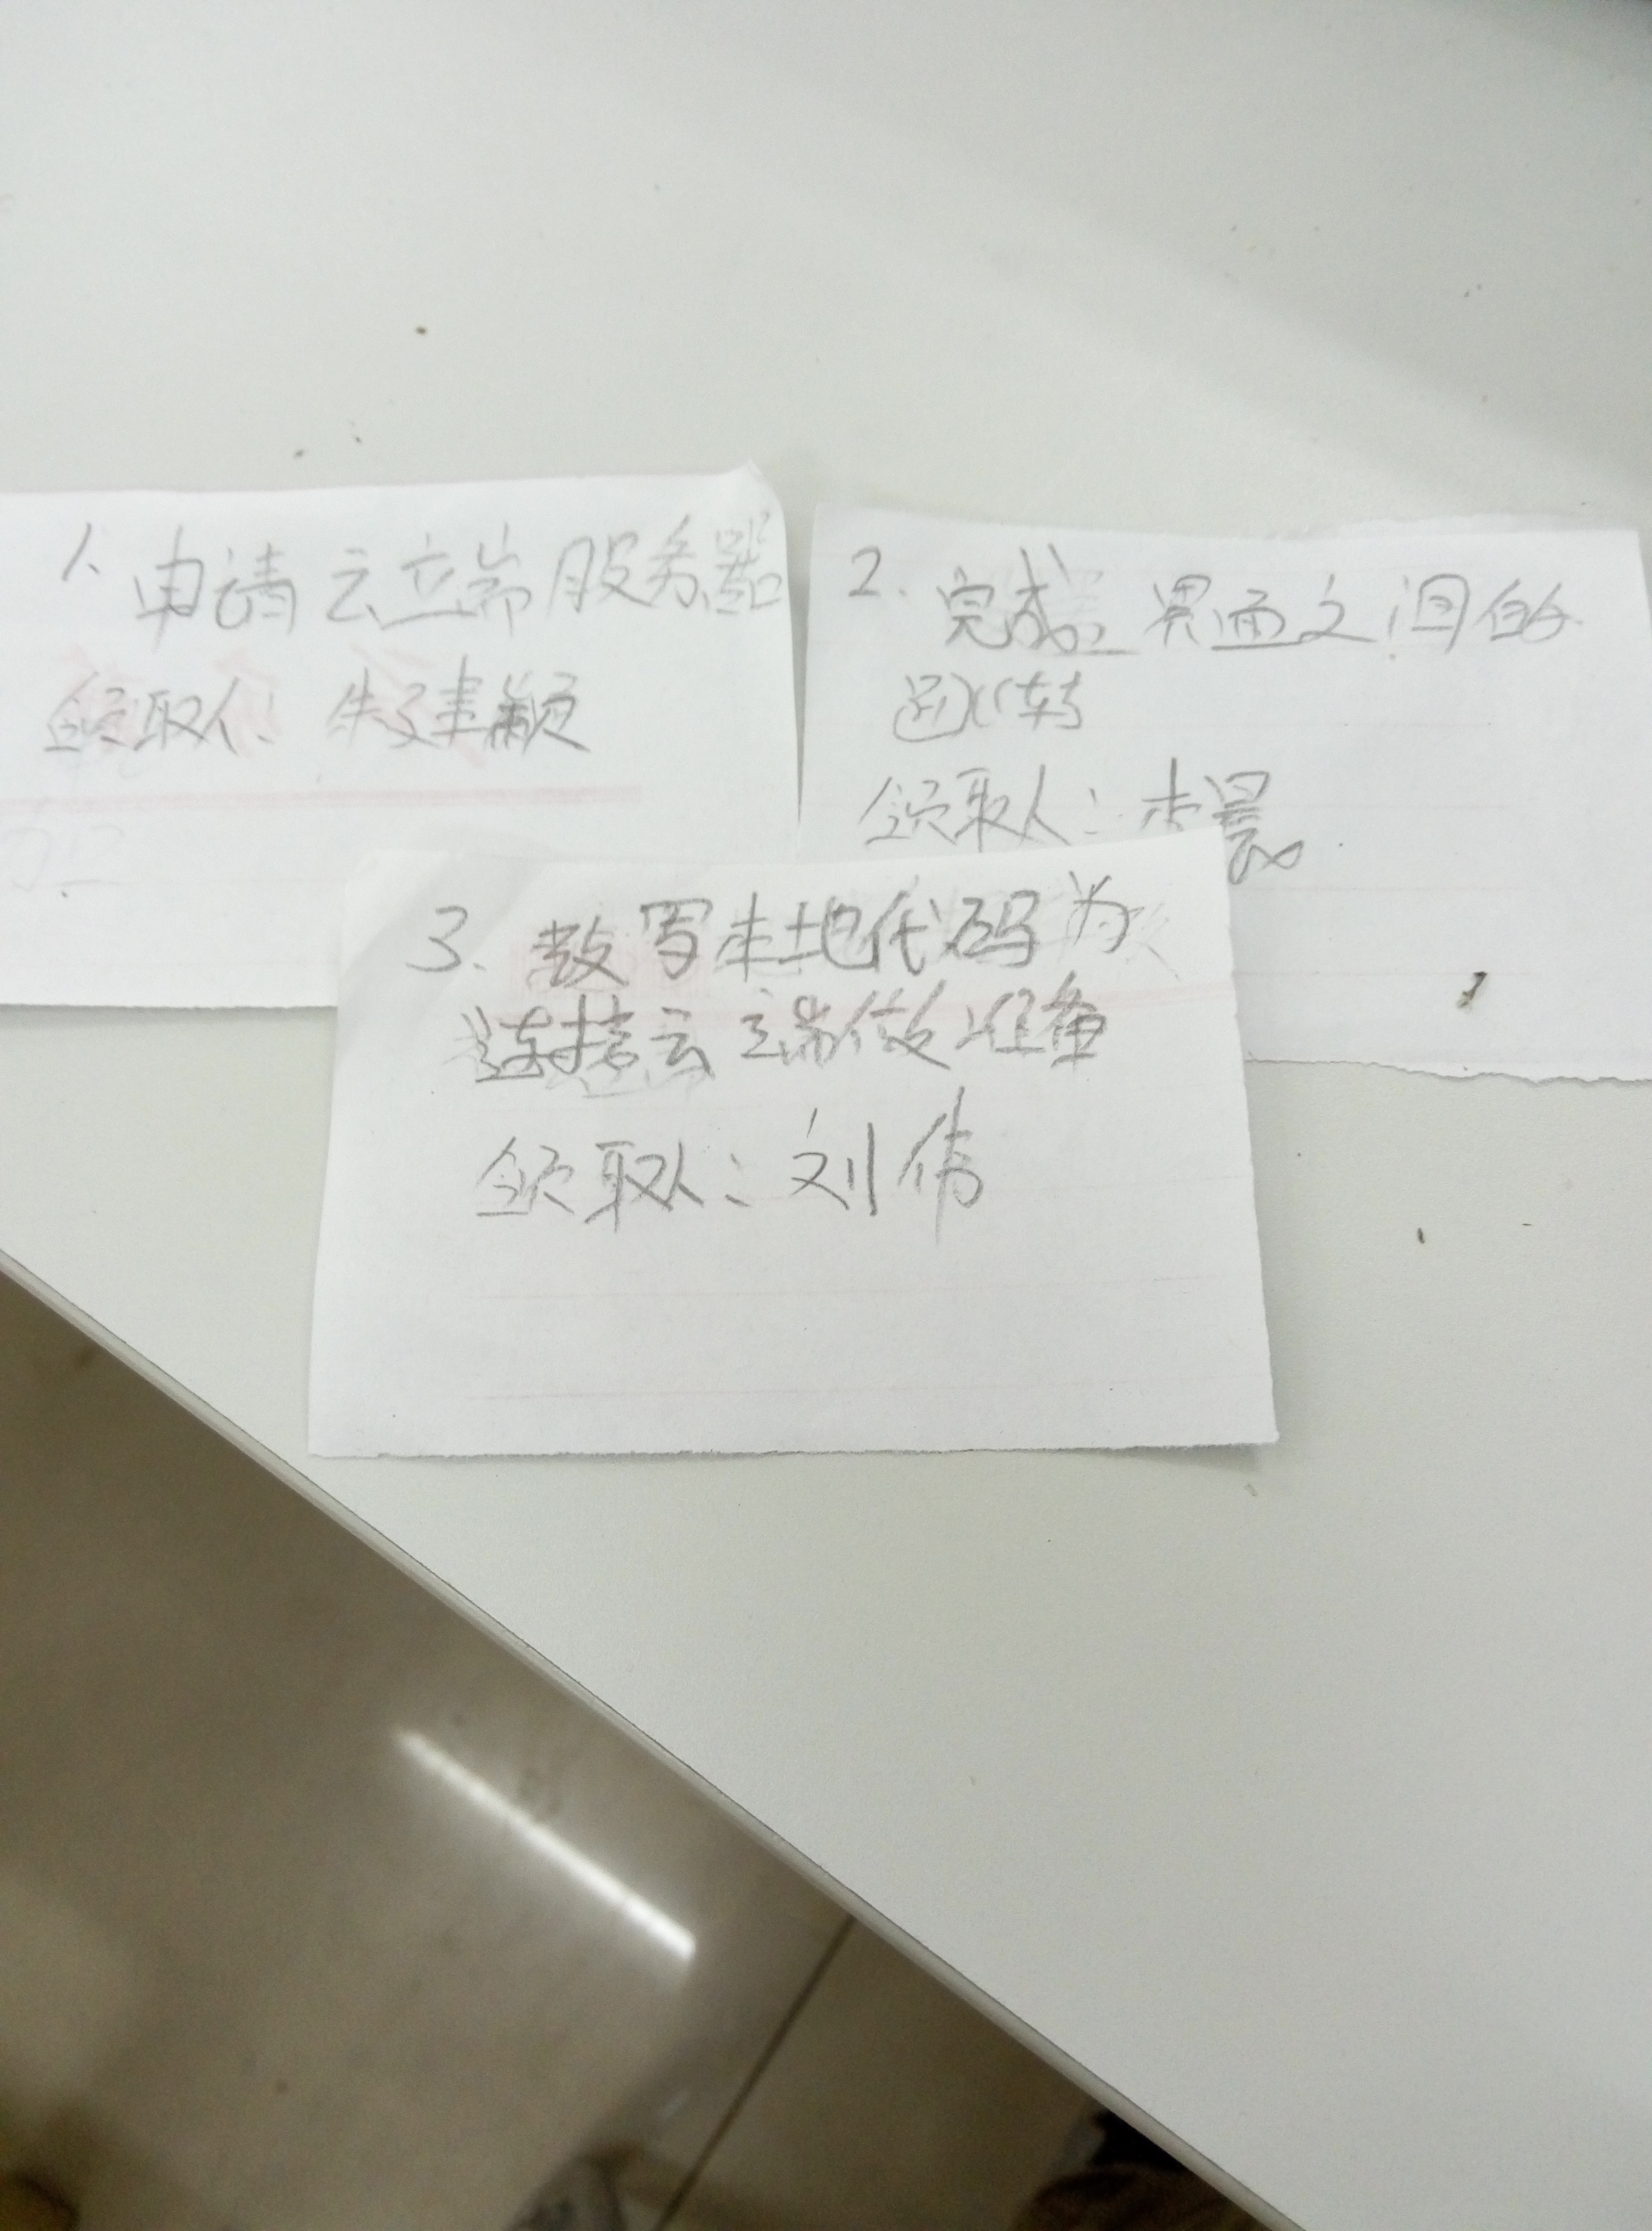 1. 申请云端服务器
领取人: 朱建颖
2. 完成界面之间的
跳转
领取人: 李晨
3. 敲写本地代码为
连接云端做准备
领取人: 刘伟